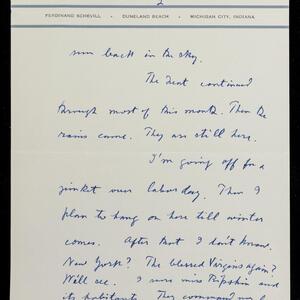 2
FERDINAND SCHEVILL · DUNELAND BEACH · MICHIGAN CITY, INDIANA
sun back in the sky.
The heat continued
through most of this month. Then the
rains came. They are still here.
I'm going off for a
junket over labor day. Then I
plan to hang on here till winter
comes. After that I don't know.
New York? The blessed Virgins again?
We'll see. I sure miss Ripshin and
its habitants. They command one of